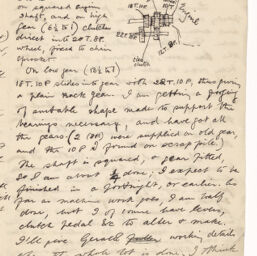 on squared again
shaft, and on high
gear (6½ to 1) clutches
direct into 20T. 8P.
wheel, fixed to chain
sprocket.
On low gear (13½ to 1)
18T. 10P. slides into gear with 22T. 10P, thus giving
a plain back gear. I am getting a forging
of suitable shape made to support the
bearings necessary, and have got all
the gears (2 8P) were supplied in old gear
and the 10P I found on scrap pile)
The shaft is squared, & gear fitted,
so I am about ½ done; I expect to be
finished in a fortnight, or earlier. As
far as machine work goes, I am half
done, but I of course have levers,
clutch pedal etc to alter & make.
I'll give Gerald working details
when the whole lot is done. I think
18T. 10P.
22T. 10P.
clutch